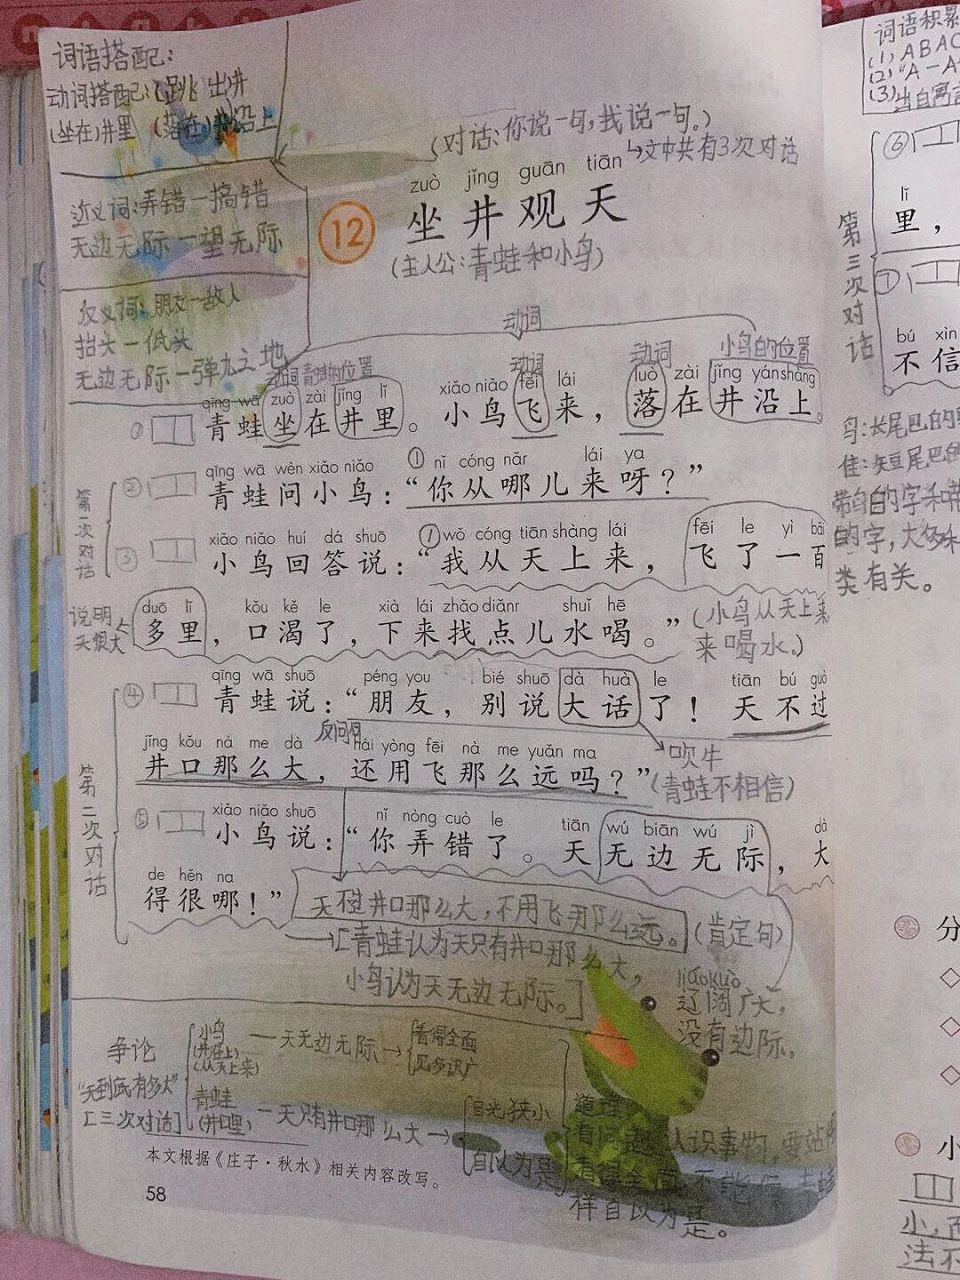 词语搭配:
动词搭配:(跳)出井
(坐在)井里 (落在)井沿上
近义词:弄错—搞错
无边无际—一望无际
反义词:朋友—敌人
抬头—低头
无边无际—弹丸之地
(对话:你说一句,我说一句。)
↳文中共有3次对话
zuò jǐng guān tiān
12 坐井观天
(主人公:青蛙和小鸟)
动词
动词 青蛙的位置 动词 动词 小鸟的位置
qīng wā zuò zài jǐng lǐ xiǎo niǎo fēi lái luò zài jǐng yán shàng
① 青蛙坐在井里。小鸟飞来,落在井沿上。
第一次对话
qīng wā wèn xiǎo niǎo nǐ cóng nǎr lái ya
② 青蛙问小鸟:“①你从哪儿来呀?”
xiǎo niǎo huí dá shuō wǒ cóng tiān shàng lái fēi le yì bǎi
③ 小鸟回答说:“①我从天上来,飞了一百
说明天很大
duō lǐ kǒu kě le xià lái zhǎo diǎnr shuǐ hē
多里,口渴了,下来找点儿水喝。”(小鸟从天上来
来喝水。)
第二次对话
qīng wā shuō péng you bié shuō dà huà le tiān bú guò
④ 青蛙说:“朋友,别说大话了!天不过
反问句
jǐng kǒu nà me dà hái yòng fēi nà me yuǎn ma
井口那么大,还用飞那么远吗?”
→吹牛
(青蛙不相信)
xiǎo niǎo shuō nǐ nòng cuò le tiān wú biān wú jì dà
⑤ 小鸟说:“你弄错了。天无边无际,大
de hěn na
得很哪!”
天不过井口那么大,不用飞那么远。(肯定句)
→[青蛙认为天只有井口那么大,
小鸟认为天无边无际。]
liáo kuò
辽阔广大,
没有边际。
争论
“天到底有多大”
[三次对话]
小鸟
(井沿上)
(从天上来)
—天无边无际→
看得全面
见多识广
青蛙
(井口里)
—天只有井口那么大→
目光狭小
自以为是
道理
认识事物,要站
样自以为是。
本文根据《庄子·秋水》相关内容改写。
58
词语积累
(1)ABAC
(2)“A一A
(3)出自寓言
⑥
第三次对话
lǐ
里,
⑦
bú xìn
不信
鸟:长尾巴的
隹:短尾巴的
的字,大多和
类有关。
分
小
小,而
法不